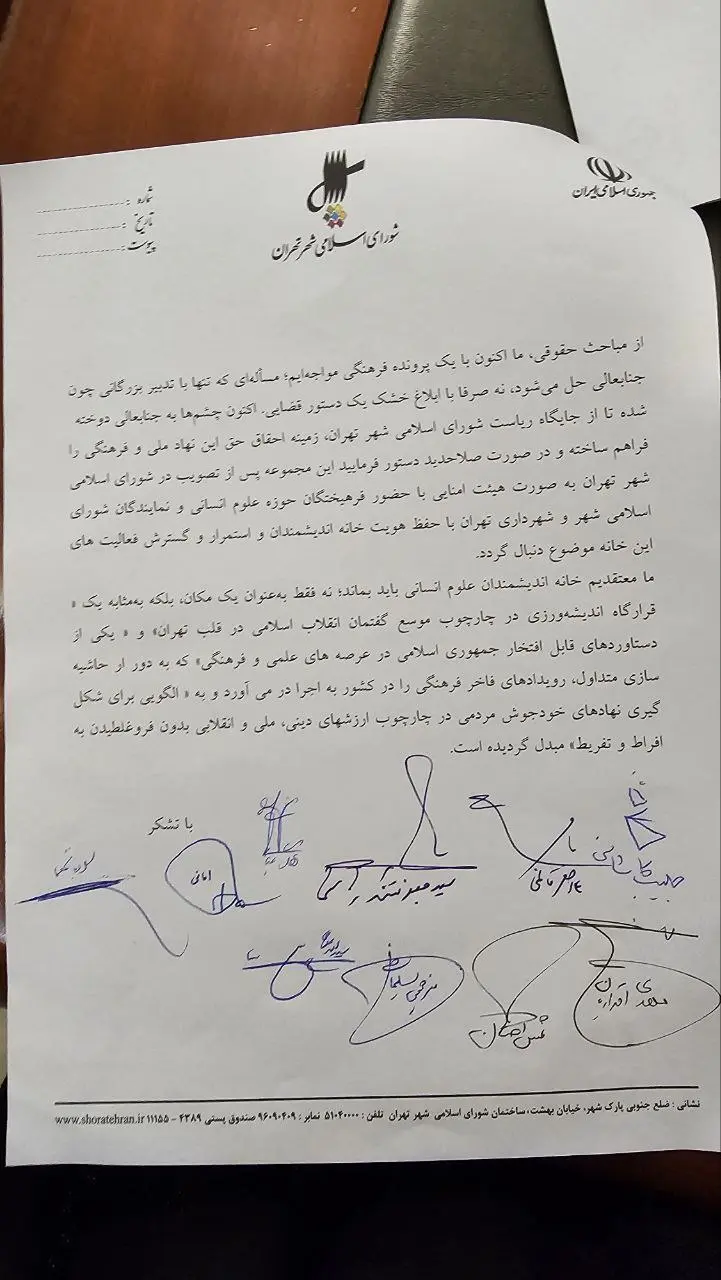 جمهوری اسلامی ایران
شورای اسلامی شهر تهران
شماره :
تاریخ :
پیوست :
از مباحث حقوقی، ما اکنون با یک پرونده فرهنگی مواجه‌ایم؛ مسأله‌ای که تنها با تدبیر بزرگانی چون
جنابعالی حل می‌شود، نه صرفا با ابلاغ خشک یک دستور قضایی. اکنون چشم‌ها به جنابعالی دوخته
شده تا از جایگاه ریاست شورای اسلامی شهر تهران، زمینه احقاق حق این نهاد ملی و فرهنگی را
فراهم ساخته و در صورت صلاحدید دستور فرمایید این مجموعه پس از تصویب در شورای اسلامی
شهر تهران به صورت هیئت امنایی با حضور فرهیختگان حوزه علوم انسانی و نمایندگان شورای
اسلامی شهر و شهرداری تهران با حفظ هویت خانه اندیشمندان و استمرار و گسترش فعالیت های
این خانه موضوع دنبال گردد.
ما معتقدیم خانه اندیشمندان علوم انسانی باید بماند؛ نه فقط به‌عنوان یک مکان، بلکه به‌مثابه یک «
قرارگاه اندیشه‌ورزی در چارچوب موسع گفتمان انقلاب اسلامی در قلب تهران» و « یکی از
دستاوردهای قابل افتخار جمهوری اسلامی در عرصه های علمی و فرهنگی» که به دور از حاشیه
سازی متداول، رویدادهای فاخر فرهنگی را در کشور به اجرا در می آورد و به « الگویی برای شکل
گیری نهادهای خودجوش مردمی در چارچوب ارزشهای دینی، ملی و انقلابی بدون فروغلطیدن به
افراط و تفریط» مبدل گردیده است.
با تشکر
حبیب کاشانی
امانی
مهدی
نشانی : ضلع جنوبی پارک شهر، خیابان بهشت، ساختمان شورای اسلامی شهر تهران تلفن : ۵۱۰۴۰۰۰۰ نمابر : ۹۶۰۹۰۴۰۹ صندوق پستی ۴۳۸۹ – ۱۱۱۵۵ www.shoratehran.ir